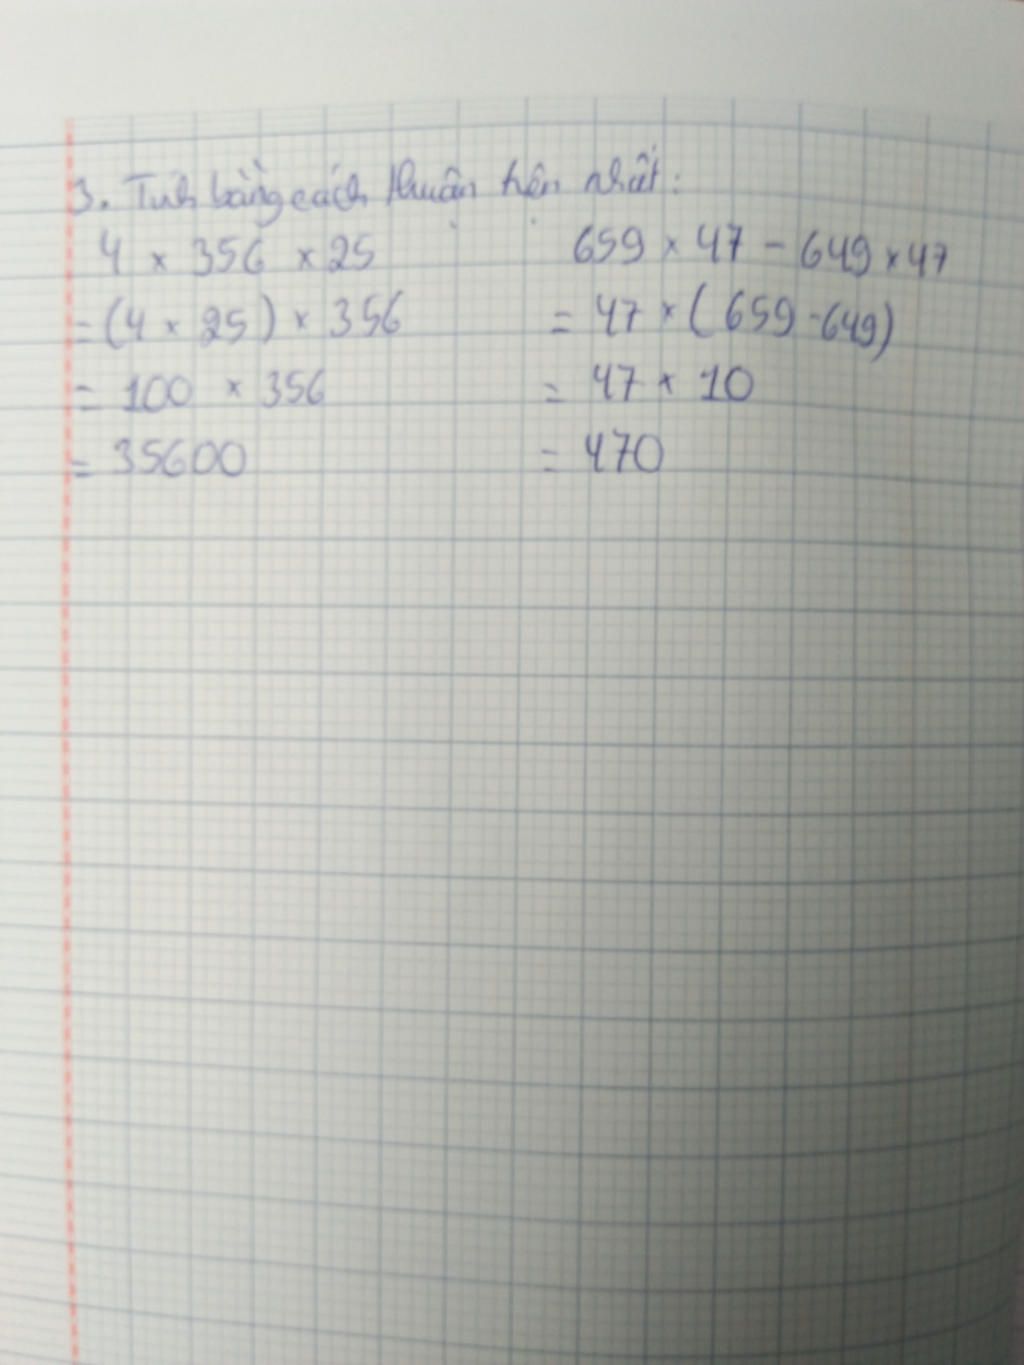 3. Tính bằng cách thuận tiện nhất:
4 × 356 × 25
= (4 × 25) × 356
= 100 × 356
= 35600
659 × 47 - 649 × 47
= 47 × (659 - 649)
= 47 × 10
= 470